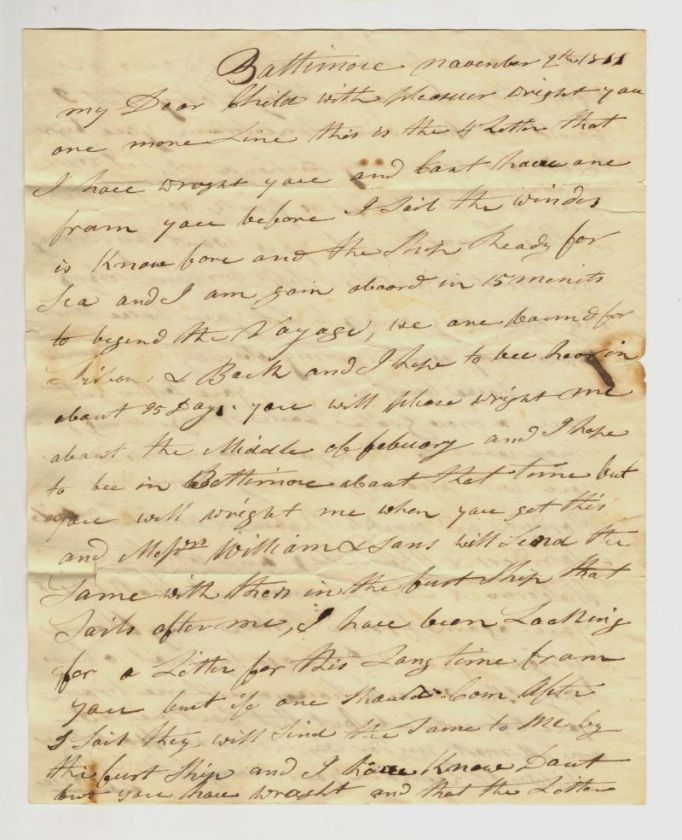 Baltimore november 9th 1811
my Dear Child with pleasuer wright you
one more Line this is the 4 Letter that
I have wroght you and cant have one
from you before I Sail the winds
is Know fore and the Ship Ready for
Sea and I am goin aboard in 15 menits
to begend the Voyage, we are bound for
Lisbon & Back and I hope to bee hear in
about 95 Days. you will please wright me
about the Middle of febuary and I hope
to bee in Baltimore about that time but
you will wright me when you get this
and Messrs William & Sons will Send the
Same with them in the furst Ship that
Sails after me, I have been Looking
for a Letter for this Long time from
you but if one Should Com After
I Sail they will Send the Same to Me by
the furst Ship and I have Know Dout
but you have wroght and that the Letter